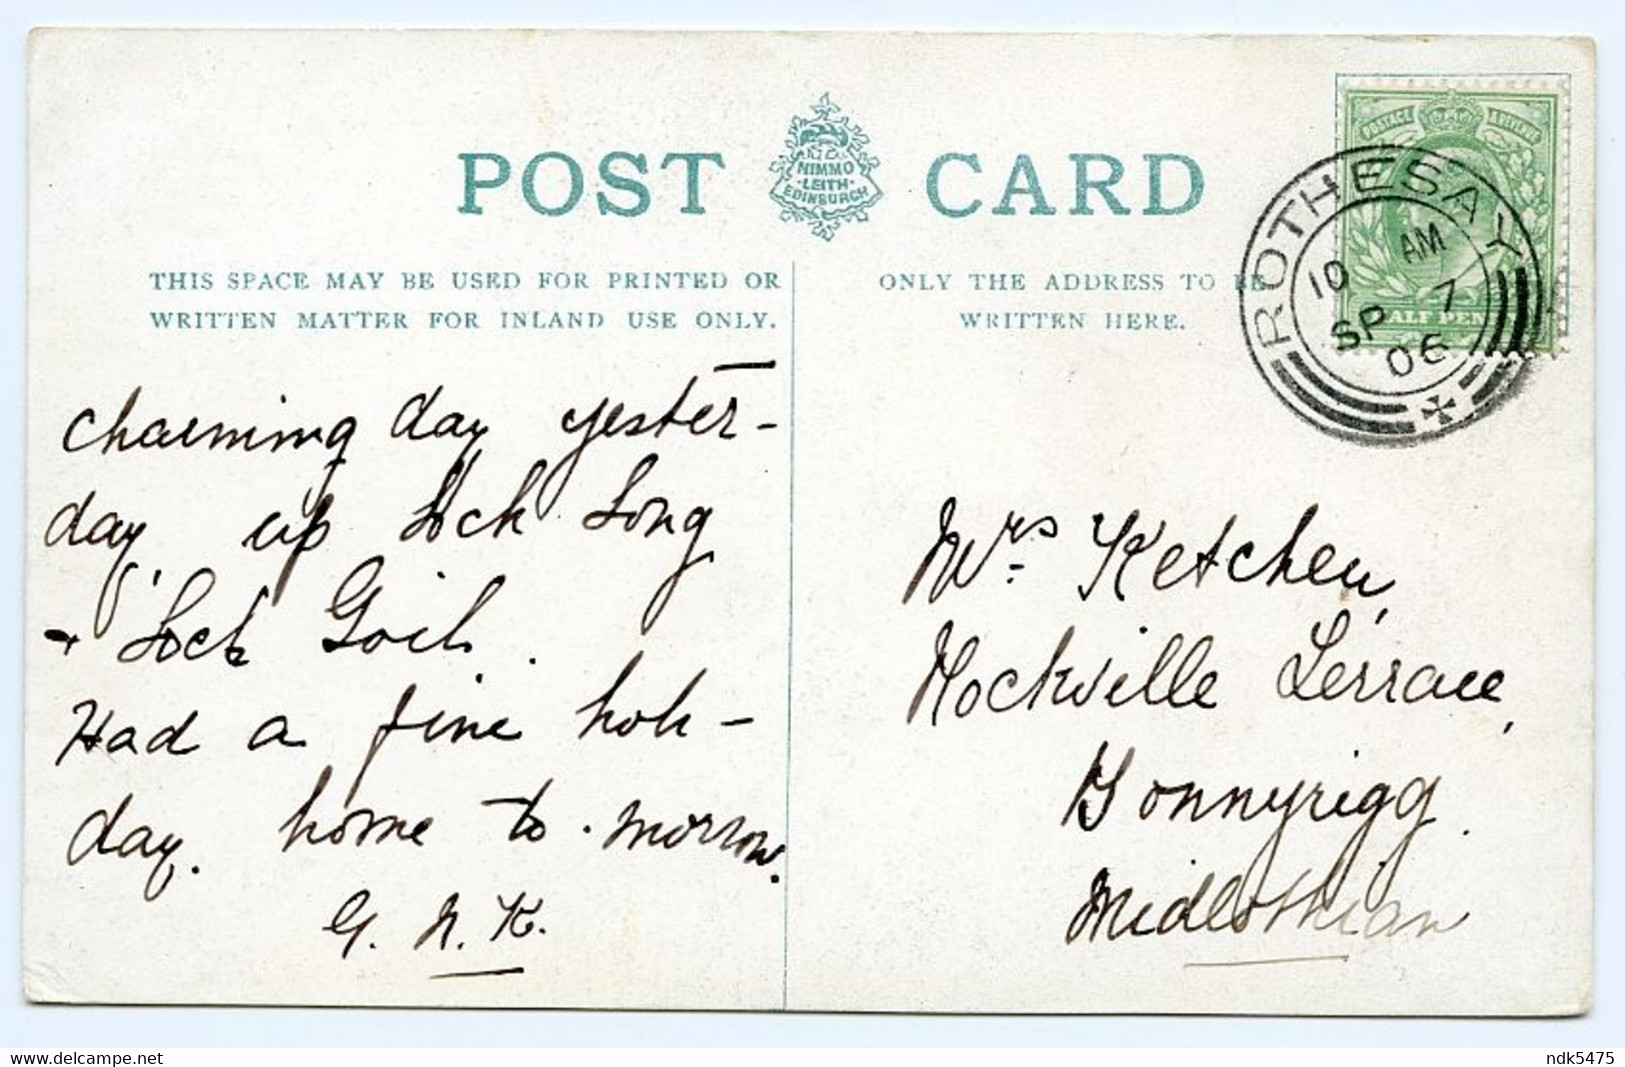 POST CARD
NIMMO
LEITH
EDINBURGH
THIS SPACE MAY BE USED FOR PRINTED OR
WRITTEN MATTER FOR INLAND USE ONLY.
ONLY THE ADDRESS TO BE
WRITTEN HERE.
POSTAGE & REVENUE
HALF PENNY
ROTHESAY
10 AM
SP 7
06
Charming day yester-
day, up Loch Long
+ Loch Goil.
Had a fine holi-
day. home to-morrow.
G. N. K.
Mrs. Ketchen,
Rockville Terrace,
Bonnyrigg.
Midlothian
www.delcampe.net
ndk5475